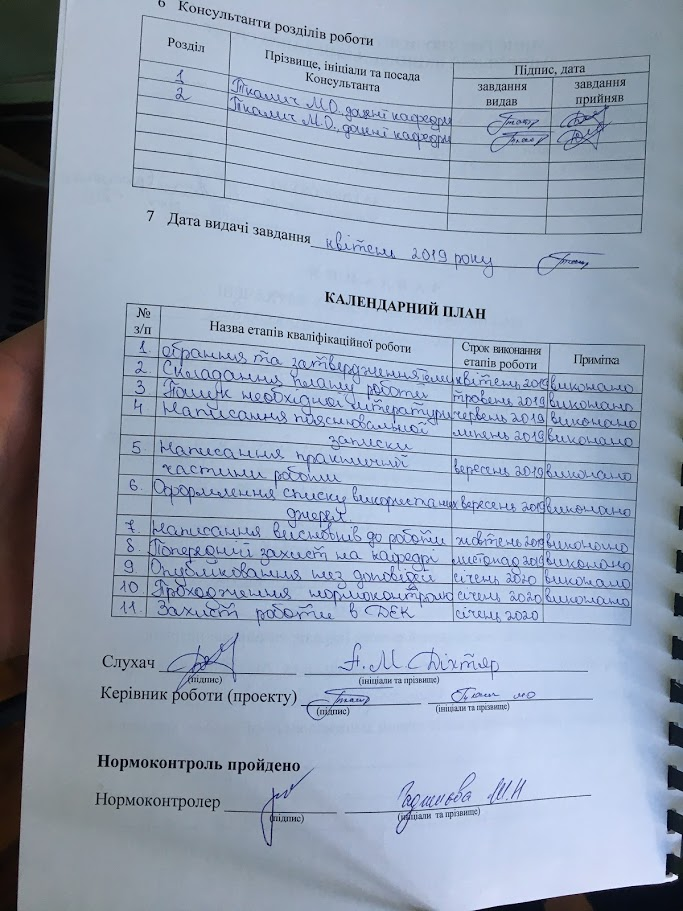 6 Консультанти розділів роботи
Розділ Прізвище, ініціали та посада Консультанта Підпис, дата
завдання видав завдання прийняв
1 Ткалич М.О., доцент кафедри
2 Ткалич М.О., доцент кафедри
7 Дата видачі завдання квітень 2019 року
КАЛЕНДАРНИЙ ПЛАН
№ з/п Назва етапів кваліфікаційної роботи Строк виконання етапів роботи Примітка
1 обрання та затвердження теми квітень 2019 виконано
2 Складання плану роботи травень 2019 виконано
3 Пошук необхідної літератури червень 2019 виконано
4 Написання пояснювальної липень 2019 виконано
записки
5. Написання практичної
частини роботи вересень 2019 виконано
6. Оформлення списку використаних вересень 2019 виконано
джерел
7. Написання висновків до роботи жовтень 2019 виконано
8. Попередній захист на кафедрі листопад 2019 виконано
9 Опублікування тез доповідей січень 2020 виконано
10 Проходження нормоконтролю січень 2020 виконано
11. Захист роботи в ДЕК січень 2020
Слухач А.М Діхтяр
(підпис) (ініціали та прізвище)
Керівник роботи (проекту)
(підпис) (ініціали та прізвище)
Нормоконтроль пройдено
Нормоконтролер М.Н
(підпис) (ініціали та прізвище)